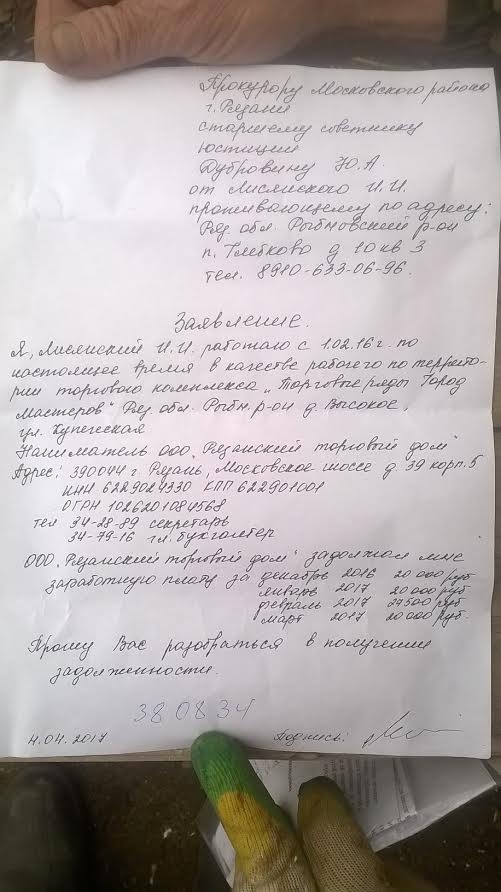 Прокурору Московского района
г. Рязани
старшему советнику
юстиции
Дубровину Ю.А.
от Лисянского И.И.
проживающему по адресу:
Ряз. обл. Рыбновский р-он
п. Глебково д 10 кв 3
тел. 8910-633-06-96.
Заявление.
Я, Лисянский И.И. работаю с 1.02.16г. по
настоящее время в качестве рабочего по террито-
рии торгового комплекса „Торговые ряды Город
Мастеров" Ряз. обл. Рыбн. р-он д. Высокое,
ул. Купеческая
Наниматель ооо „Рязанский торговый дом"
Адрес: 390044 г. Рязань, Московское шоссе д. 39 корп. 5
ИНН 6229024330 КПП 622901001
ОГРН 1026201084568
тел 34-28-89 секретарь
34-79-16 гл. бухгалтер
ООО „Рязанский торговый дом" задолжал мне
заработную плату за декабрь 2016 20 000 руб
январь 2017 20 000 руб
февраль 2017 27500 руб
март 2017 20 000 руб.
Прошу Вас разобраться в получении
задолженности.
38 08 34
4.04.2017 Подпись: